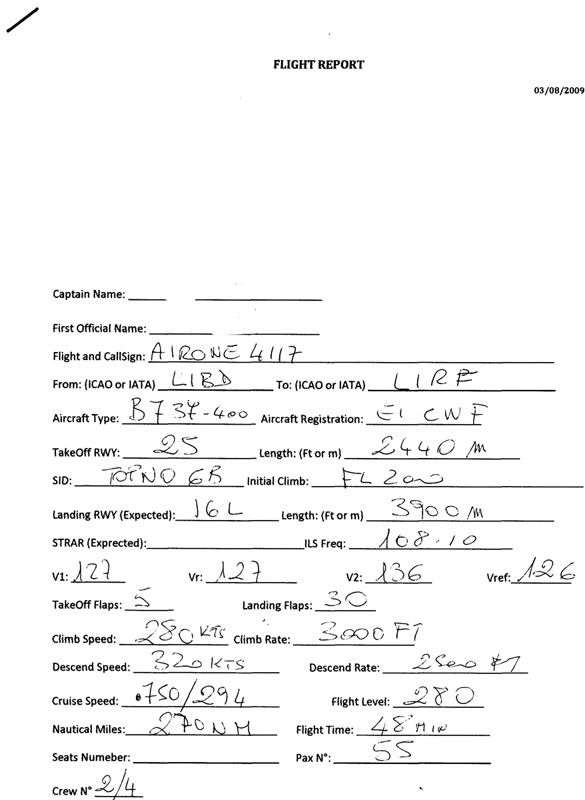 FLIGHT REPORT
03/08/2009
Captain Name:
First Official Name:
Flight and CallSign: AIRONE 4117
From: (ICAO or IATA) LIBD To: (ICAO or IATA) LIRF
Aircraft Type: B737-400 Aircraft Registration: EI CWF
TakeOff RWY: 25 Length: (Ft or m) 2440 M
SID: TOPNO 6B Initial Climb: FL 200
Landing RWY (Expected): 16L Length: (Ft or m) 3900 M
STRAR (Exprected): ILS Freq: 108.10
V1: 127 Vr: 127 V2: 136 Vref: 126
TakeOff Flaps: 5 Landing Flaps: 30
Climb Speed: 280 KTS Climb Rate: 3000 FT
Descend Speed: 320 KTS Descend Rate: 2500 FT
Cruise Speed: .750/294 Flight Level: 280
Nautical Miles: 270 NM Flight Time: 48 MIN
Seats Numeber: Pax N°: 55
Crew N° 2/4